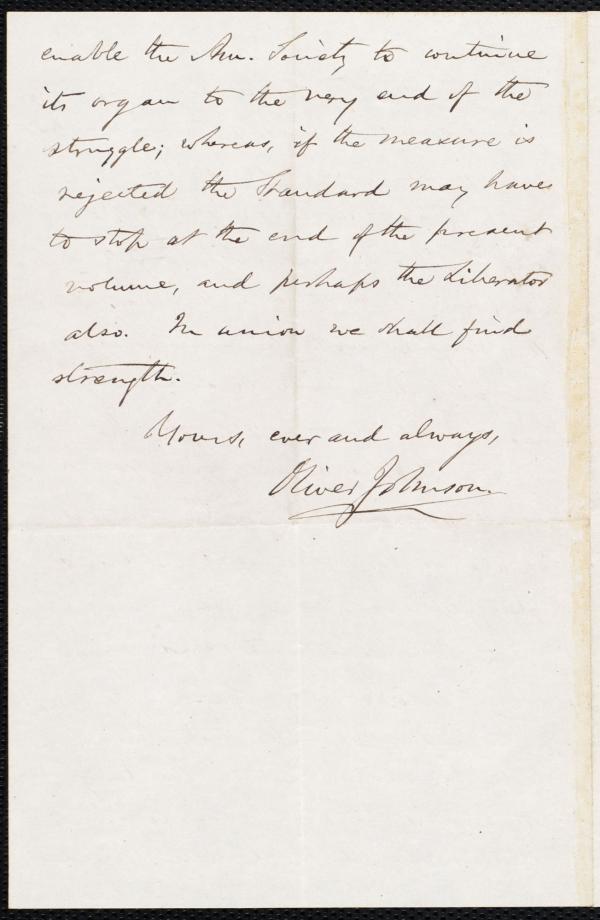 enable the Am. Society to continue
its organ to the very end of the
struggle; whereas, if the measure is
rejected the Standard may have
to stop at the end of the present
volume, and perhaps the Liberator
also. In union we shall find
strength.
Yours, ever and always,
Oliver Johnson.